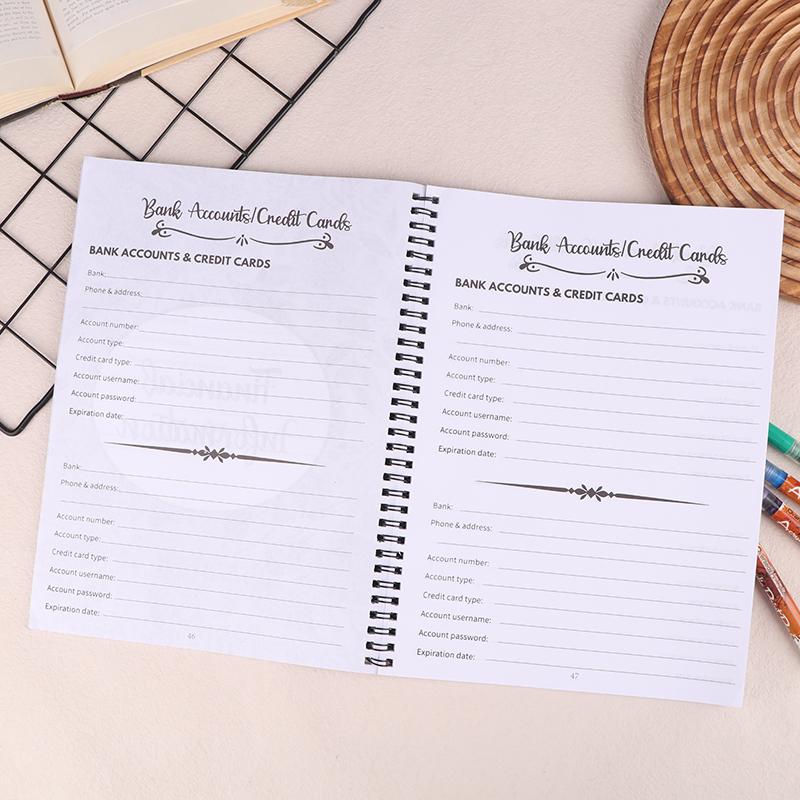 Bank Accounts/Credit Cards
BANK ACCOUNTS & CREDIT CARDS
Bank:
Phone & address:
Account number:
Account type:
Credit card type:
Account username:
Account password:
Expiration date:
Bank:
Phone & address:
Account number:
Account type:
Credit card type:
Account username:
Account password:
Expiration date:
46
Bank Accounts/Credit Cards
BANK ACCOUNTS & CREDIT CARDS
Bank:
Phone & address:
Account number:
Account type:
Credit card type:
Account username:
Account password:
Expiration date:
Bank:
Phone & address:
Account number:
Account type:
Credit card type:
Account username:
Account password:
Expiration date:
47
Financial
Information